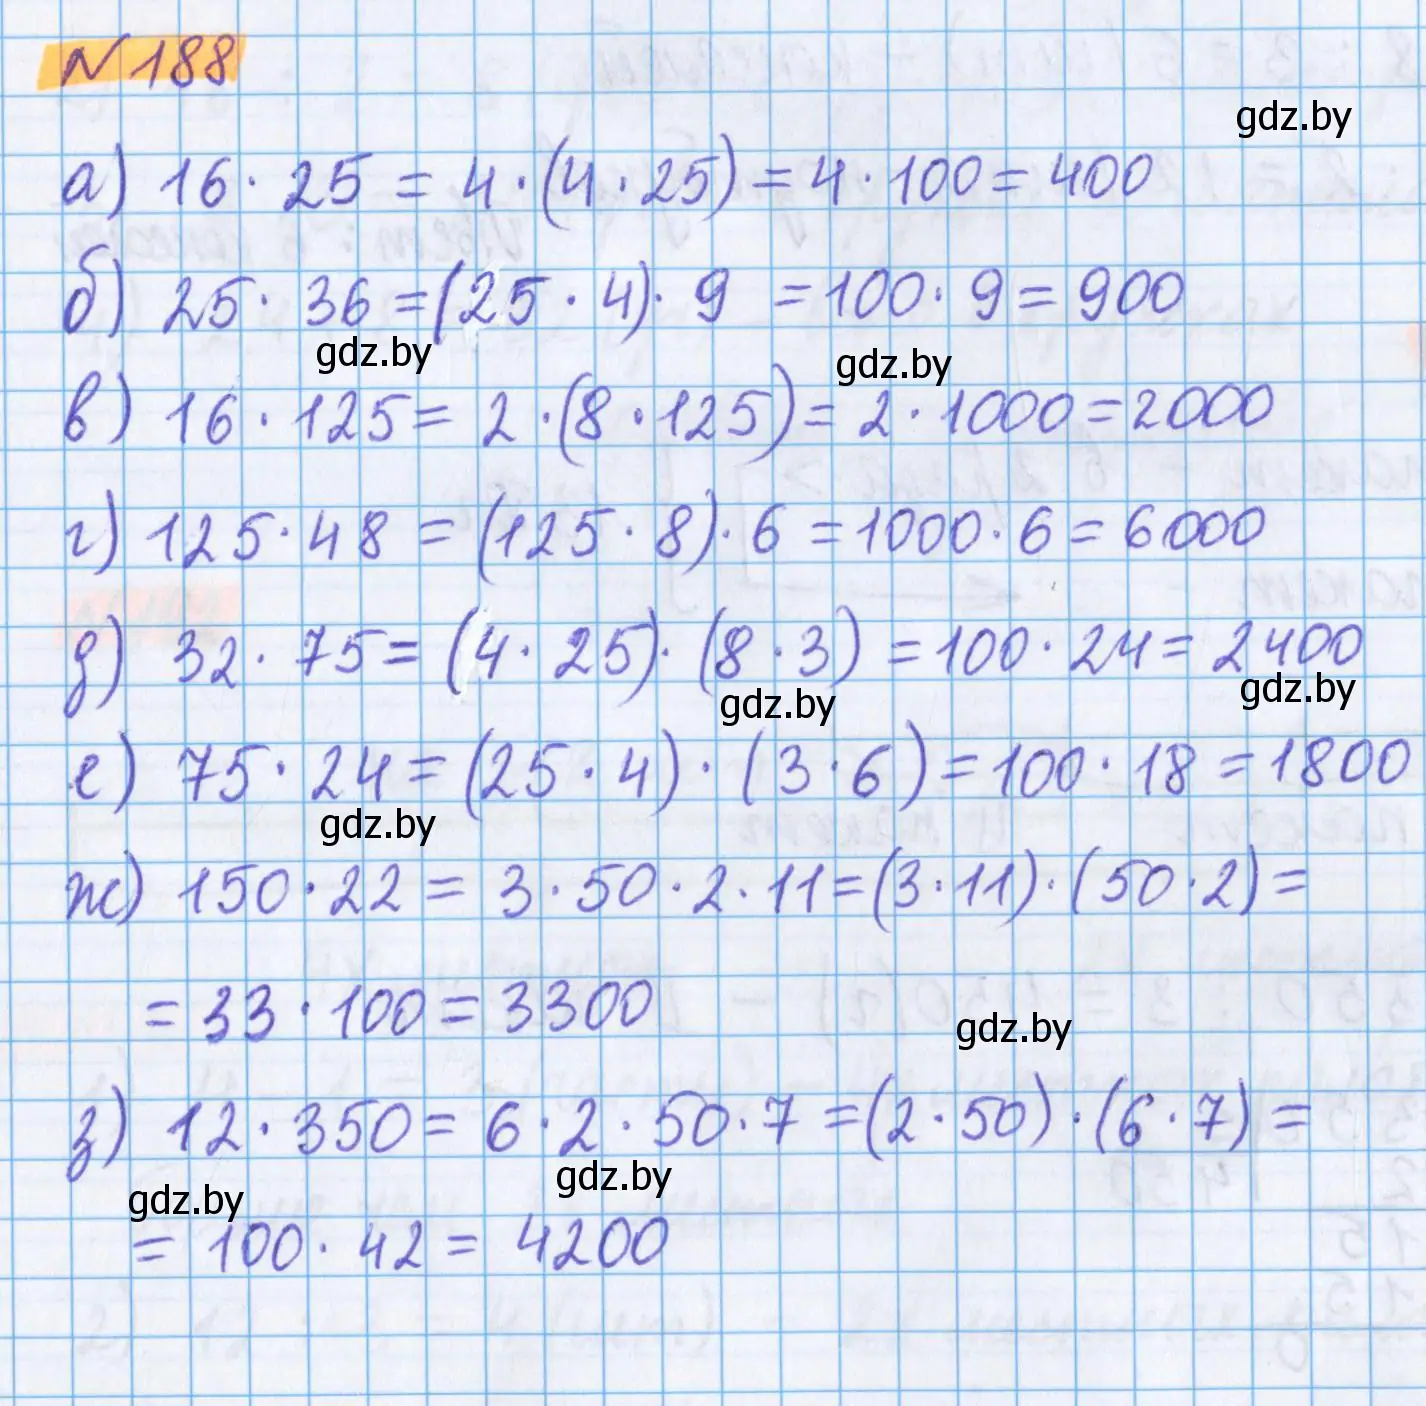 N 188
gdz.by
а) 16 · 25 = 4 · (4 · 25) = 4 · 100 = 400
б) 25 · 36 = (25 · 4) · 9 = 100 · 9 = 900
gdz.by gdz.by
в) 16 · 125 = 2 · (8 · 125) = 2 · 1000 = 2000
г) 125 · 48 = (125 · 8) · 6 = 1000 · 6 = 6000
д) 32 · 75 = (4 · 25) · (8 · 3) = 100 · 24 = 2400
gdz.by gdz.by
е) 75 · 24 = (25 · 4) · (3 · 6) = 100 · 18 = 1800
gdz.by
ж) 150 · 22 = 3 · 50 · 2 · 11 = (3 · 11) · (50 · 2) =
= 33 · 100 = 3300
gdz.by
з) 12 · 350 = 6 · 2 · 50 · 7 = (2 · 50) · (6 · 7) =
gdz.by gdz.by
= 100 · 42 = 4200